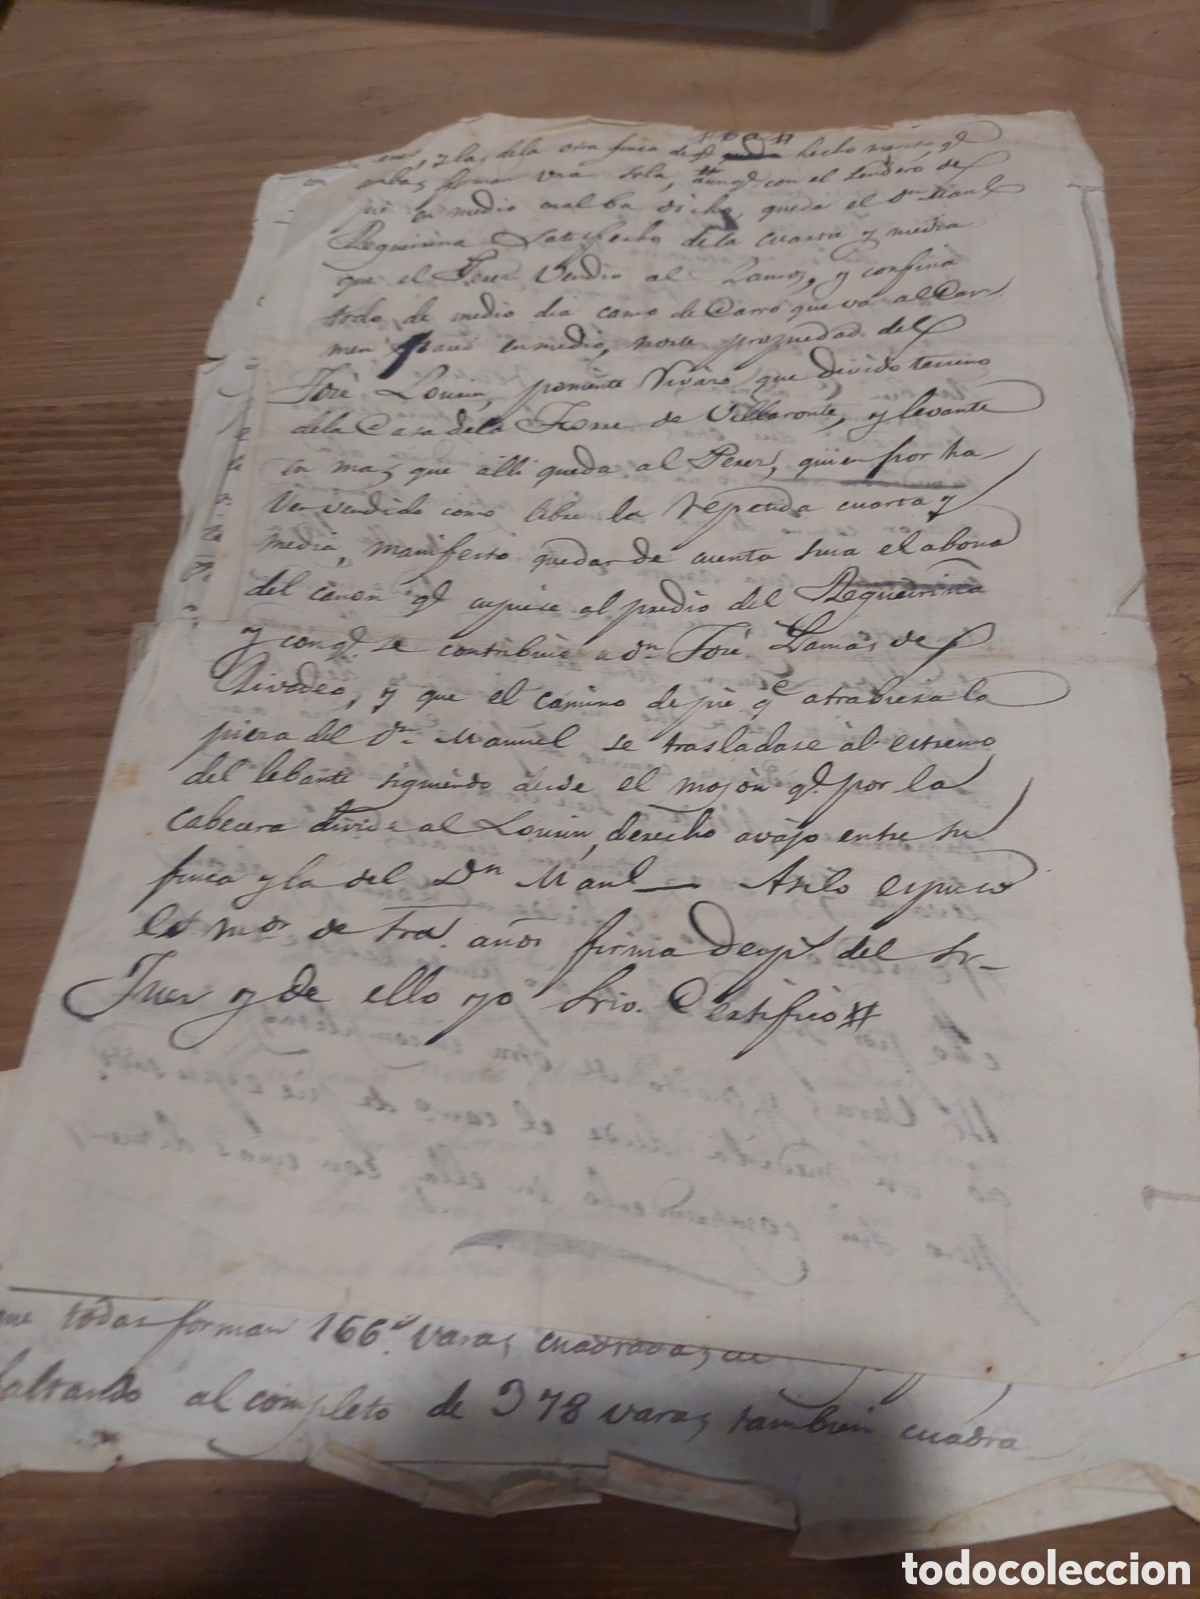 y la, dela otra finca de qe hecho merito qe
ambas forman una sola, aunqe con el sendero de
pie en medio dicho, queda el Dn Manl
Regueirina Satisfecho dela cuarta y media
que el Perer vendio al Lamas, y confina
todo, de medio dia camo de Carro que va al Car
men enmedio, norte propiedad del
José Lousin, poniente Vivaro que divide terreno
dela Casa dela Torre de Villaronte, y levante
en mas que alli queda al Perer, quien por ha-
ver vendido como libre la repetida cuarta y
media, manifesto quedar de cuenta suia el abono
del cánon qe cupiese al predio del Regueirina
y conqe se contribuie a Dn José Lamas de
Rivadeo, y que el camino de pie qe atrabiesa la
pieza del Dn Manuel se trasladase al estremo
del lebante siguiendo desde el mojon qe por la
cabecera divide al Lousin, derecho avajo entre su
finca y la del Dn Manl — Asilo espuso
lo mor de trta años firma desps del Sr
Juez y de ello yo Srio. Certifico#
que todas forman 166 varas cuadradas,
faltando al completo de 378 varas tambien cuadra
todocoleccion